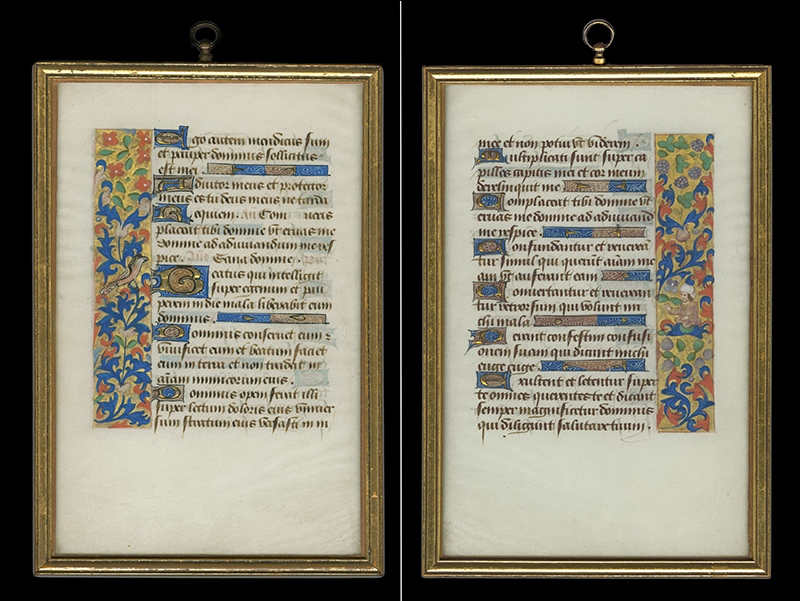 Ego autem mendicus sum
et pauper dominus sollicitus
est mei.
Adiutor meus et protector
meus es tu deus meus ne tarda
Requiem. Añ Com
placeat tibi domine vt eruas me
Domine ad adiuuandum me res
pice. Sana domine.
Beatus qui intelligit
super egenum et pau
perem in die mala liberabit eum
dominus.
Dominus conseruet eum
viuificet eum et beatum faciat
eum in terra et non tradat in
aīam inimicorum eius.
Dominus opem ferat illi
super lectum doloris eius vniuer
sum stratum eius versasti in in
mee et non potui vt viderem
Multiplicati sunt super ca
pillos capitis mei et cor meum
dereliquit me
Complaceat tibi domine vt
eruas me domine ad adiuuand
me respice.
Confundantur et reuerean
tur simul qui querunt aīam me
am vt auferant eam
Conuertantur et reuerean
tur retrorsum qui volunt mi
chi mala
Ferant confestim confusi
onem suam qui dicunt michi
euge euge.
Exultent et letentur super
te omnes querentes te et dicant
semper magnificetur dominus
qui diligunt salutare tuum.